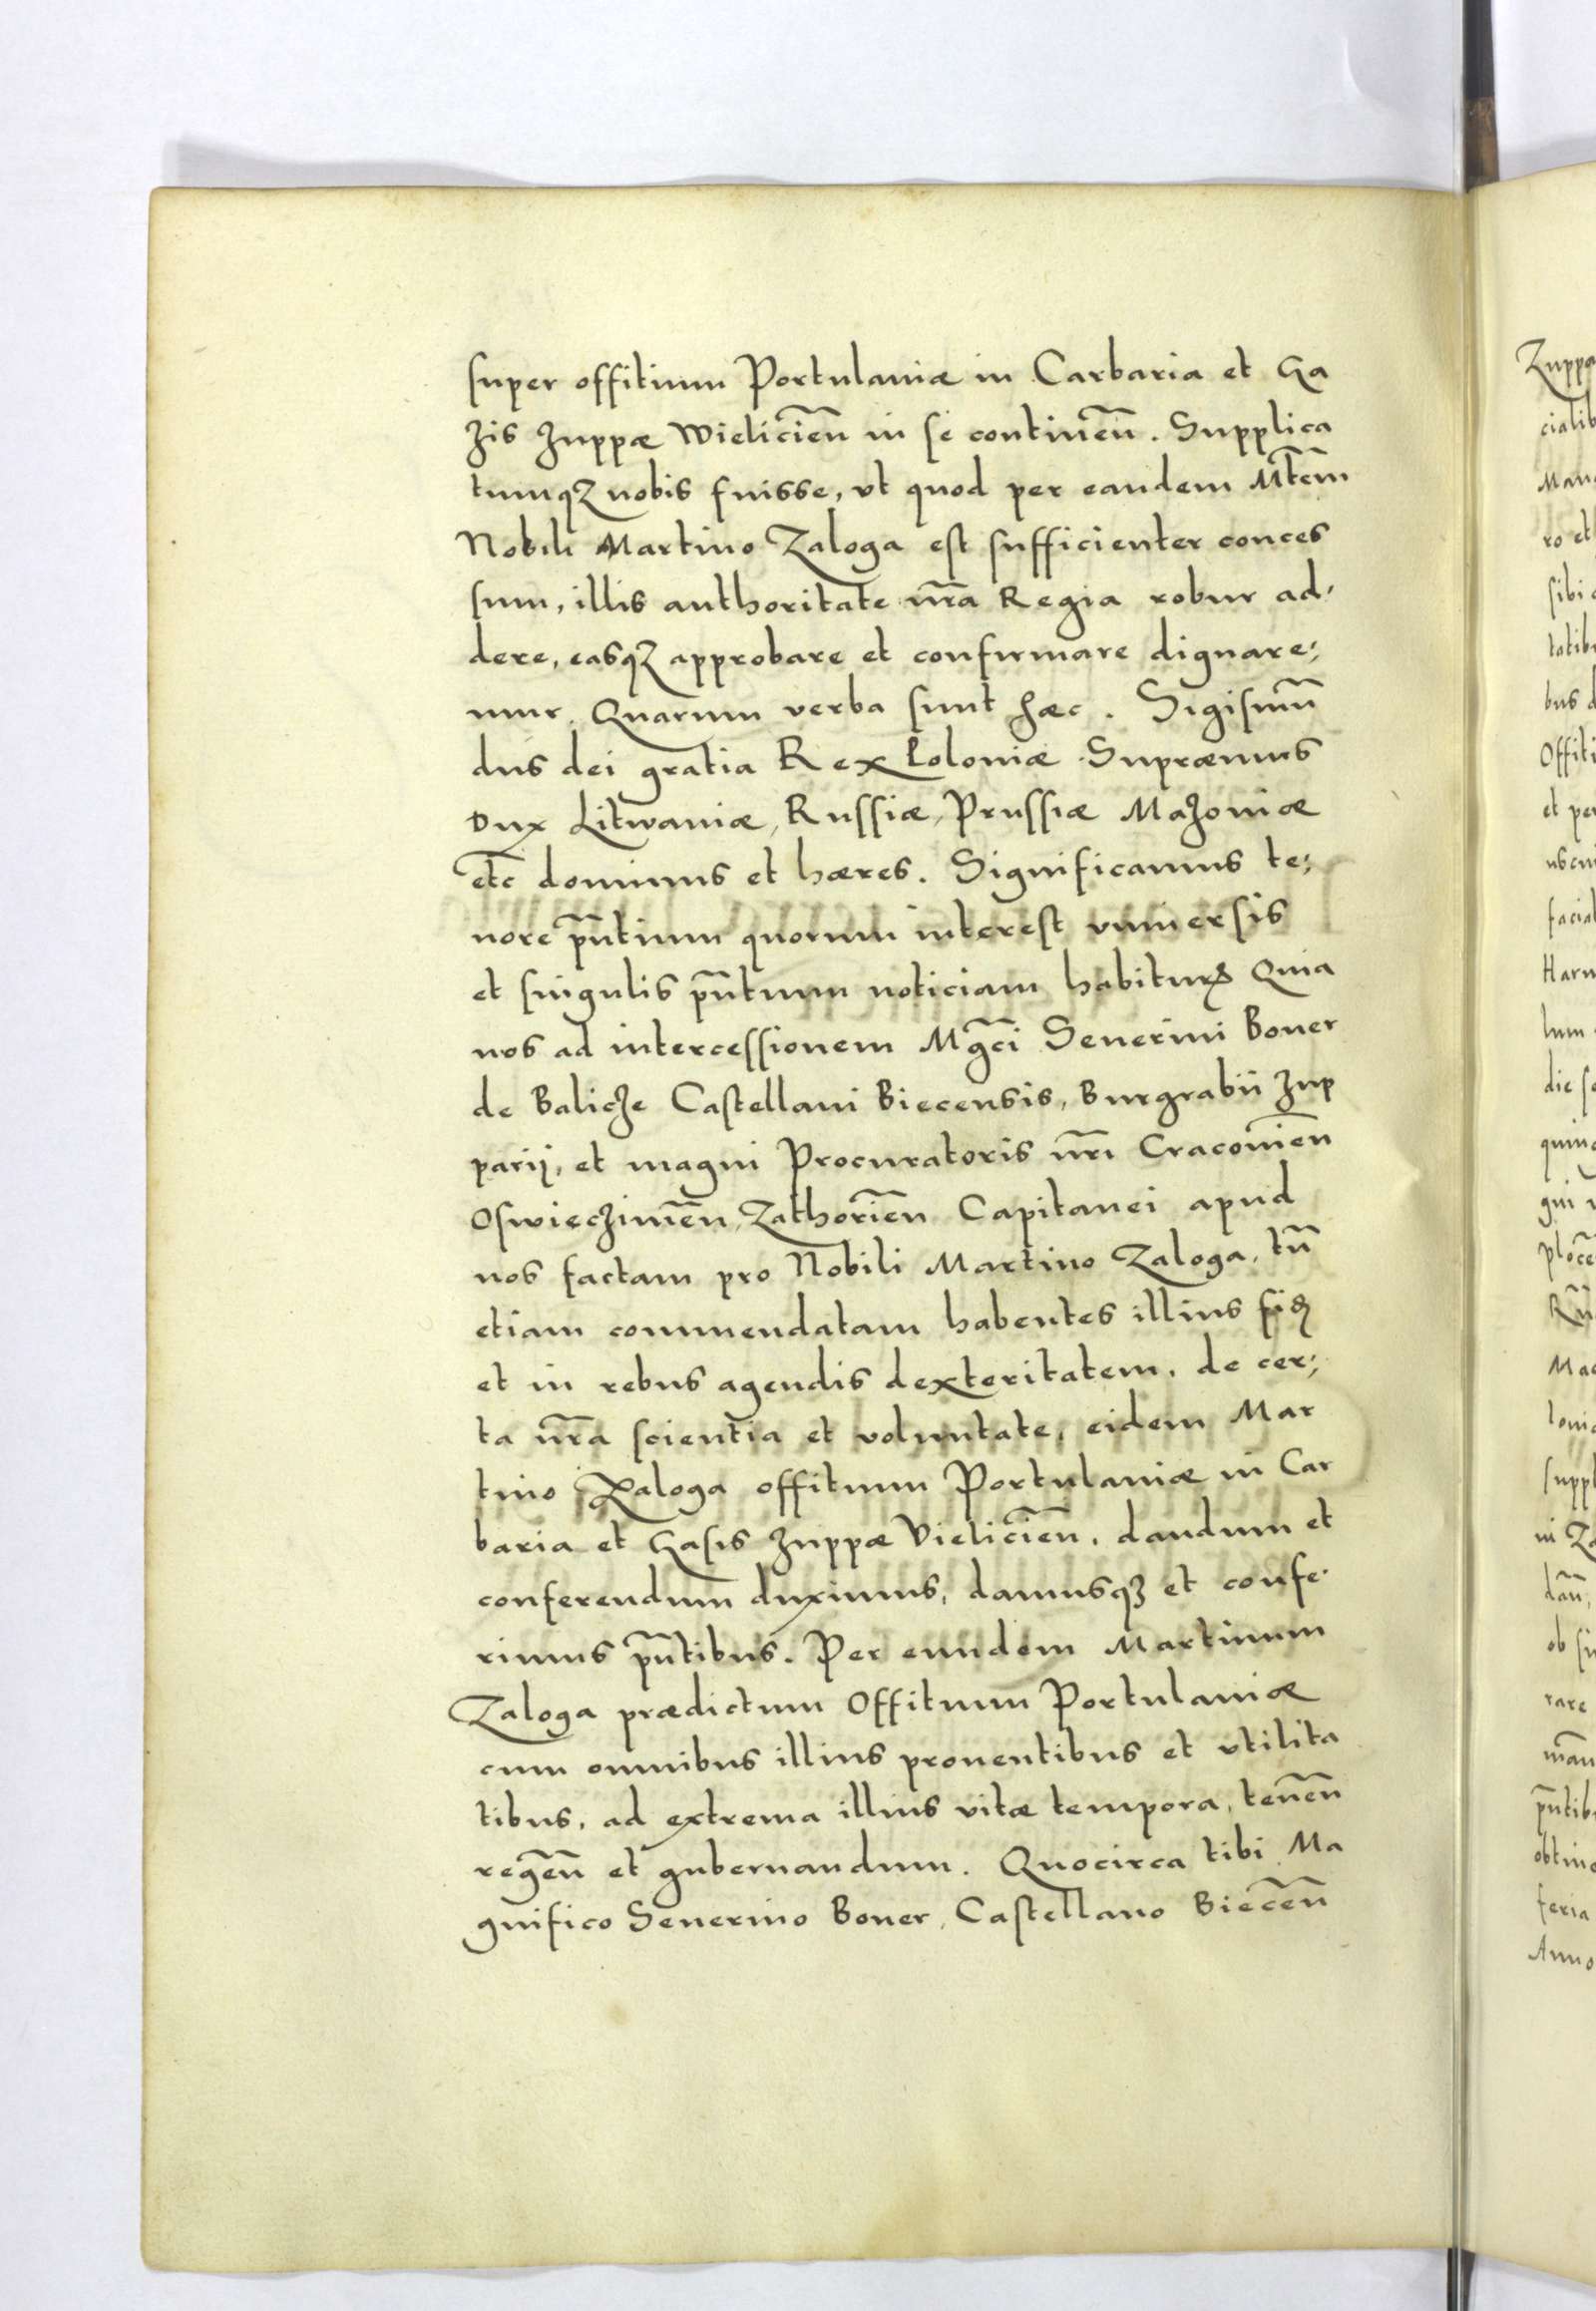 super offitium Portulaniæ in Carbaria et Ga
zis zuppæ Wielicień in se contineń. Supplica
tumqȝ nobis fuisse, vt quod per eandem Mt̃em
Nobili Martino Zaloga est sufficienter conces
sum, illis authoritate nr̃a Regia robur ad,
dere, easqȝ approbare et confirmare dignare,
mur. Quarum verba sunt hæc. Sigismuñ
dus dei gratia Rex Poloniæ Supræmus
Dux Litwaniæ, Russiæ, Prussiæ Mazoviæ
etc̃ dominus et hæres. Significamus te,
nore pñtium quorum interest vniuersis
et singulis pñtium noticiam habituꝝ Quia
nos ad intercessionem Mgc̃i Seuerini Boner
de Balicze Castellani Biecensis, Burgrabii zup
parij, et magni Procuratoris nr̃i Cracovień
Oswieczimeñ, Zathorień Capitanei apud
nos factam pro Nobili Martino Zaloga, tñ
etiam commendatam habentes illius fidē
et in rebus agendis dexteritatem, de cer,
ta nr̃a scientia et voluntate, eidem Mar
tino Zaloga offitium Portulaniæ in Car
baria et Gasis zuppæ Vielicień, dandum et
conferendum duximus, damusqȝ et confe
rimus pñtibus. Per eundem Martinum
Zaloga prædictum Offitium Portulaniæ
cum omnibus illius prouentibus et vtilita
tibus, ad extrema illius vitæ tempora, teneñ
regeñ et gubernandum. Quocirca tibi Ma
gnifico Seuerino Boner, Castellano Bieceñ